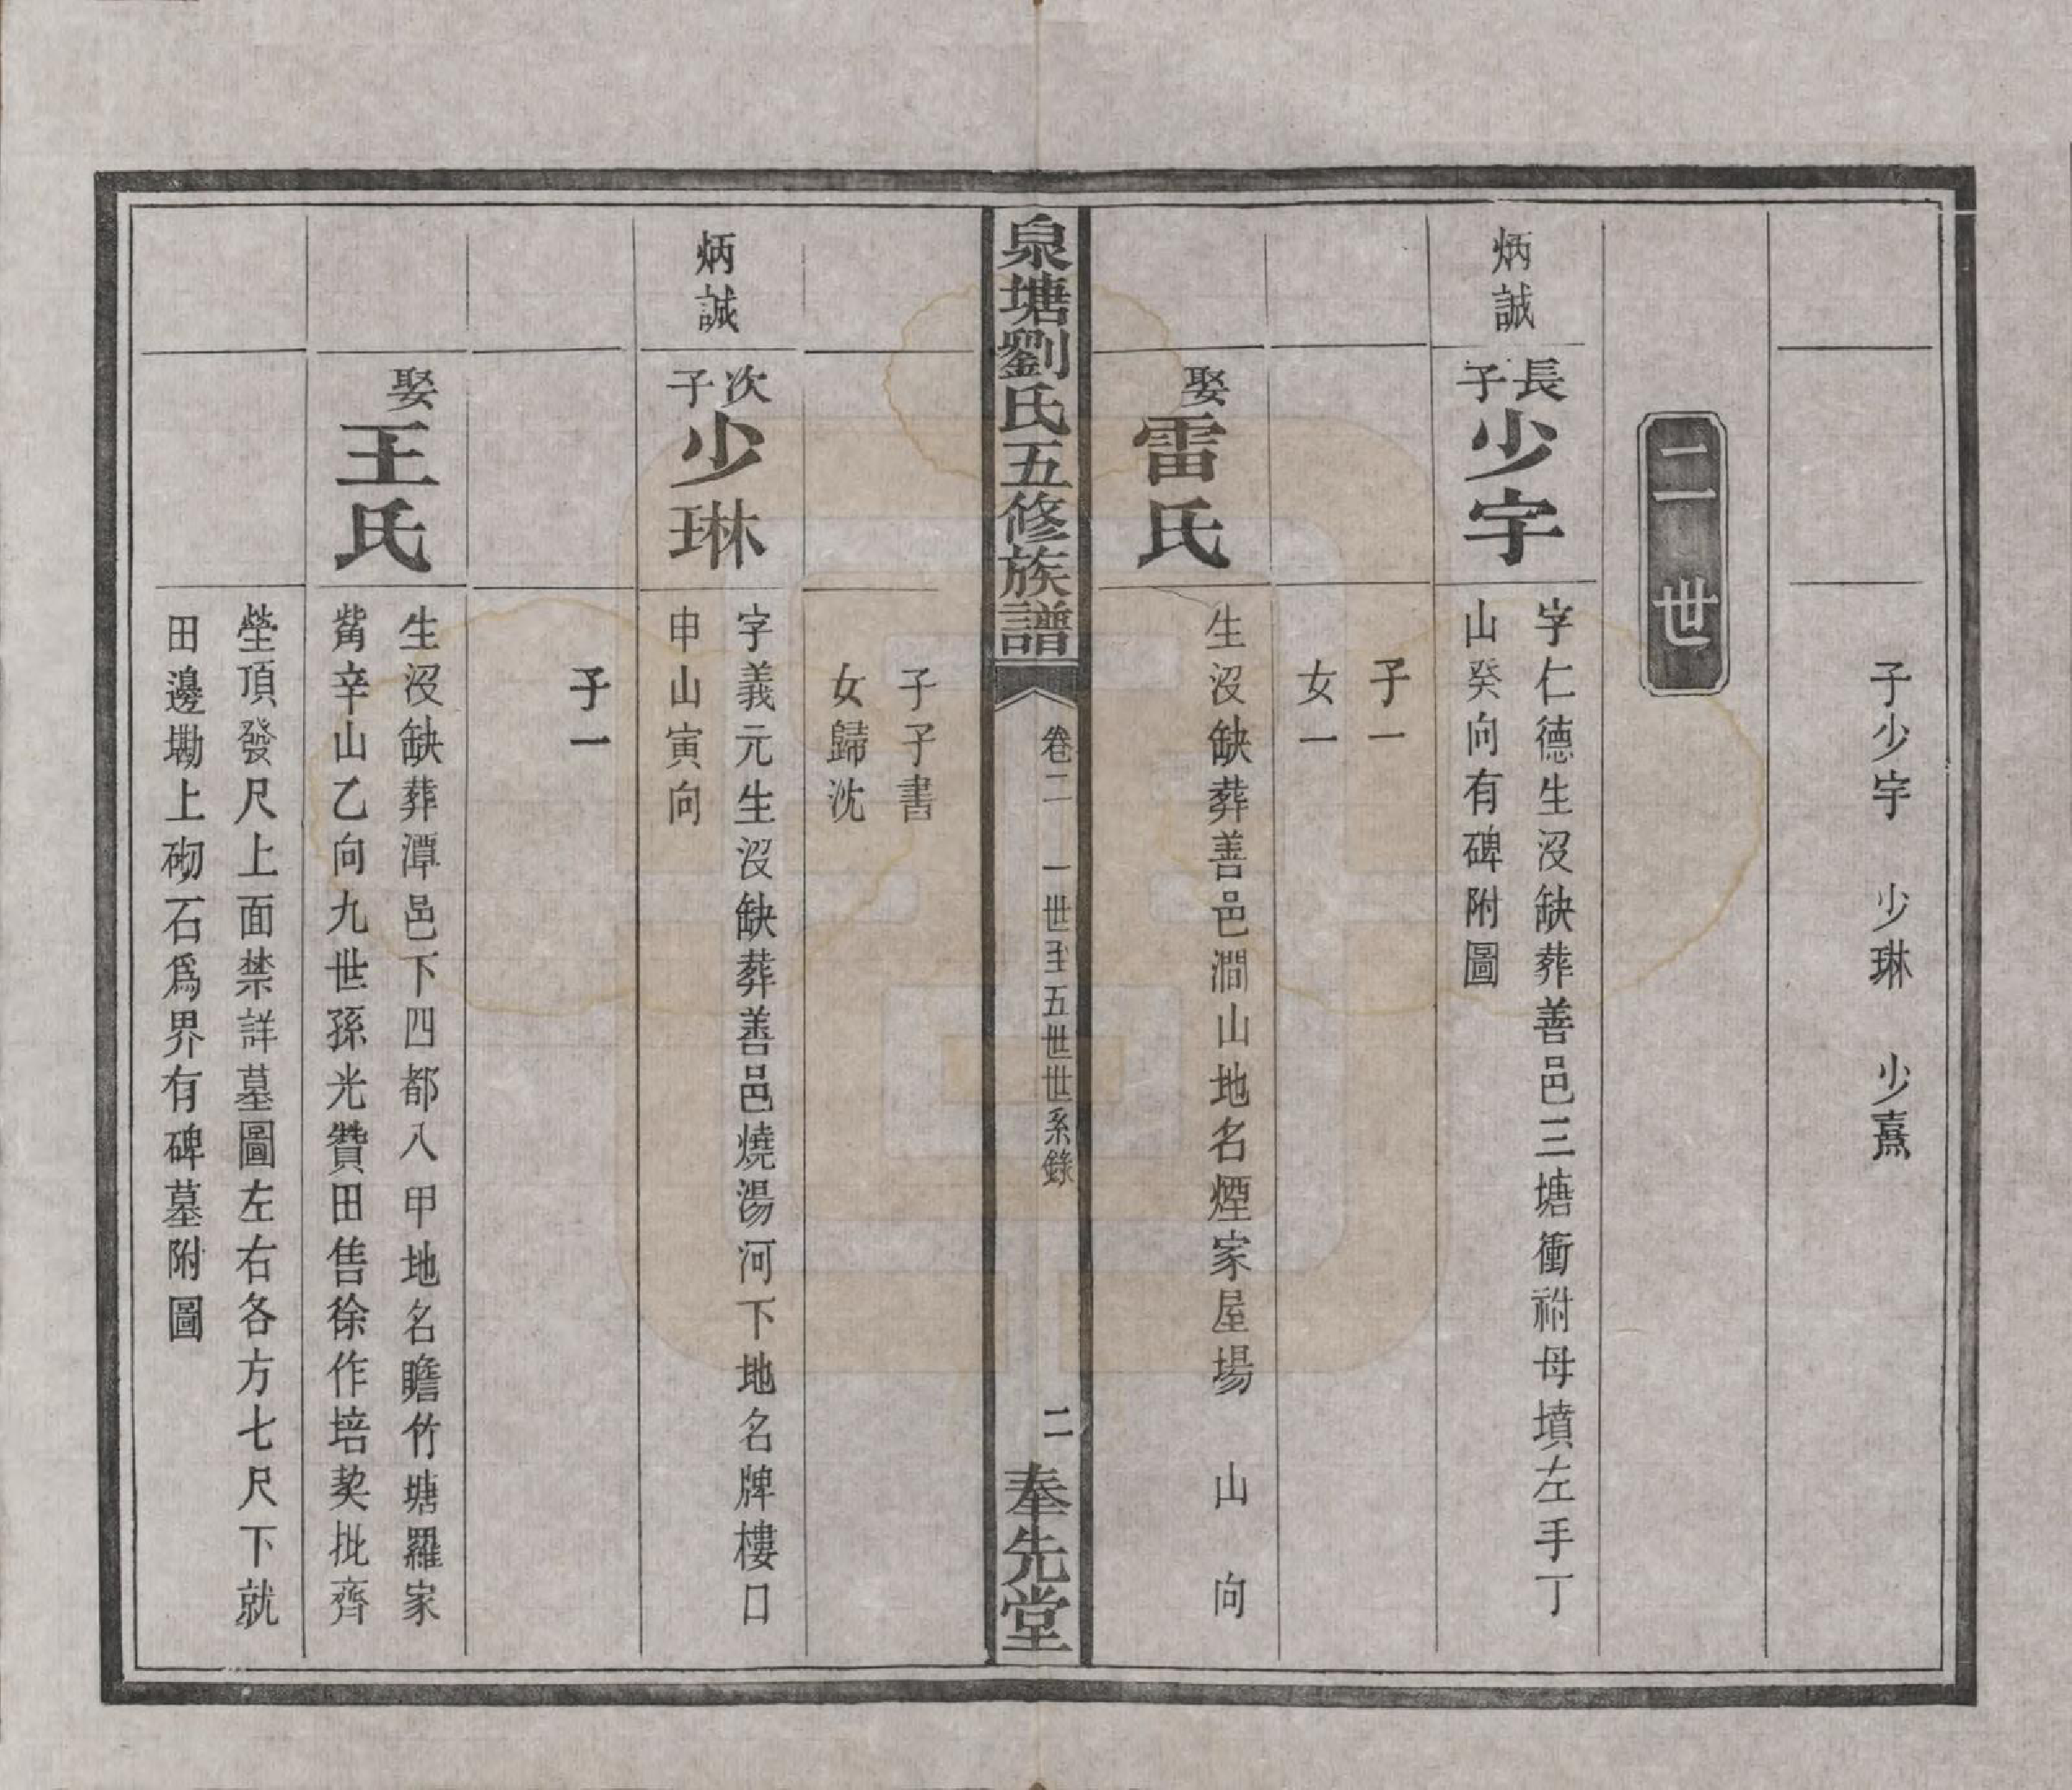 子少宇　少琳　少熹
二世
炳誠
長子少宇
字仁德生沒缺葬善邑三塘衝祔母墳左手丁
山癸向有碑附圖
子一
女一
娶雷氏
生沒缺葬善邑澗山地名煙家屋場　山　向
泉塘劉氏五修族譜
卷二　一世至五世世系錄
二
奉先堂
子子書
女歸沈
炳誠
次子少琳
字義元生沒缺葬善邑燒湯河下地名牌樓口
申山寅向
子一
娶王氏
生沒缺葬潭邑下四都八甲地名贍竹塘羅家
觜辛山乙向九世孫光贊田售徐作培契批齊
塋頂發尺上面禁詳墓圖左右各方七尺下就
田邊墈上砌石為界有碑墓附圖